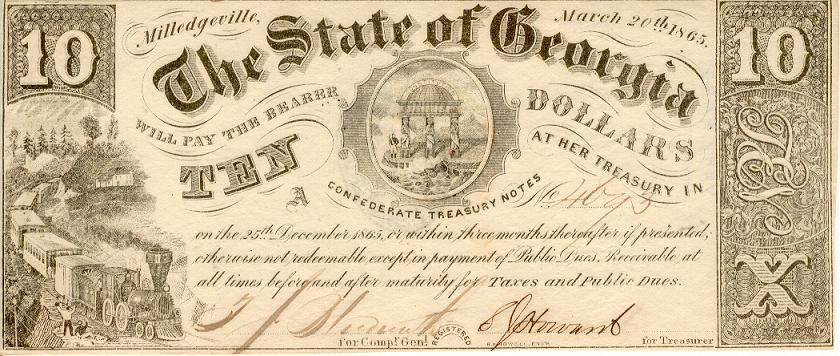 10
Milledgeville, March 20th 1865.
10
The State of Georgia
WILL PAY THE BEARER
TEN
DOLLARS
AT HER TREASURY IN
A
CONFEDERATE TREASURY NOTES
No 4695
on the 25th December 1865, or within three months thereafter if presented;
otherwise not redeemable except in payment of Public Dues. Receivable at
all times before and after maturity for Taxes and Public Dues.
TEN
X
for Compl. Genl.
REGISTERED
Howard
R.H. HOWELL, ENGR.
for Treasurer